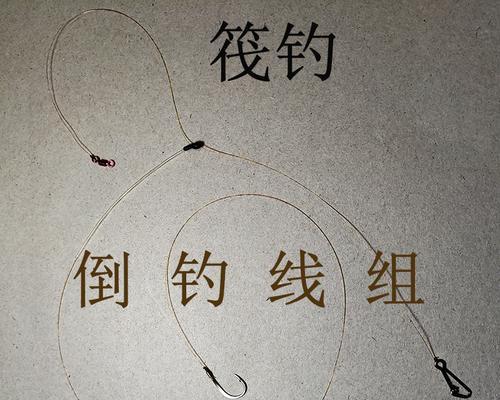 筏钓
倒钓线组